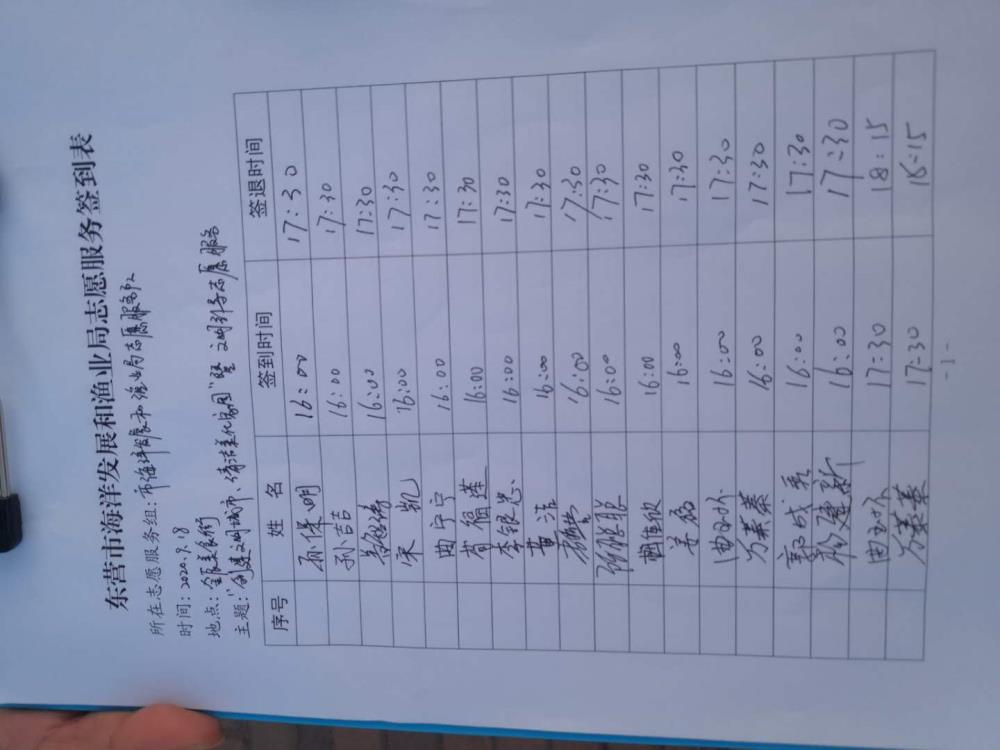 东营市海洋发展和渔业局志愿服务签到表
所在志愿服务组：市海洋发展和渔业局志愿服务队
时间：2020.9.8
地点：美食街
主题："创建文明城市、清洁美化家园"暨文明引导志愿服务
序号 姓 名 签到时间 签退时间
孙保明 16:00 17:30
孙喆 16:00 17:30
16:00 17:30
宋凯 16:00 17:30
曲宁宁 16:00 17:30
福莲 16:00 17:30
李银忠 16:00 17:30
董洁 16:00 17:30
16:00 17:30
16:00 17:30
16:00 17:30
姜 16:00 17:30
曲 16:00 17:30
万蓁蓁 16:00 17:30
郭成 16:00 17:30
建新 16:00 17:30
曲 17:30 18:15
万蓁蓁 17:30 18:15
-1-